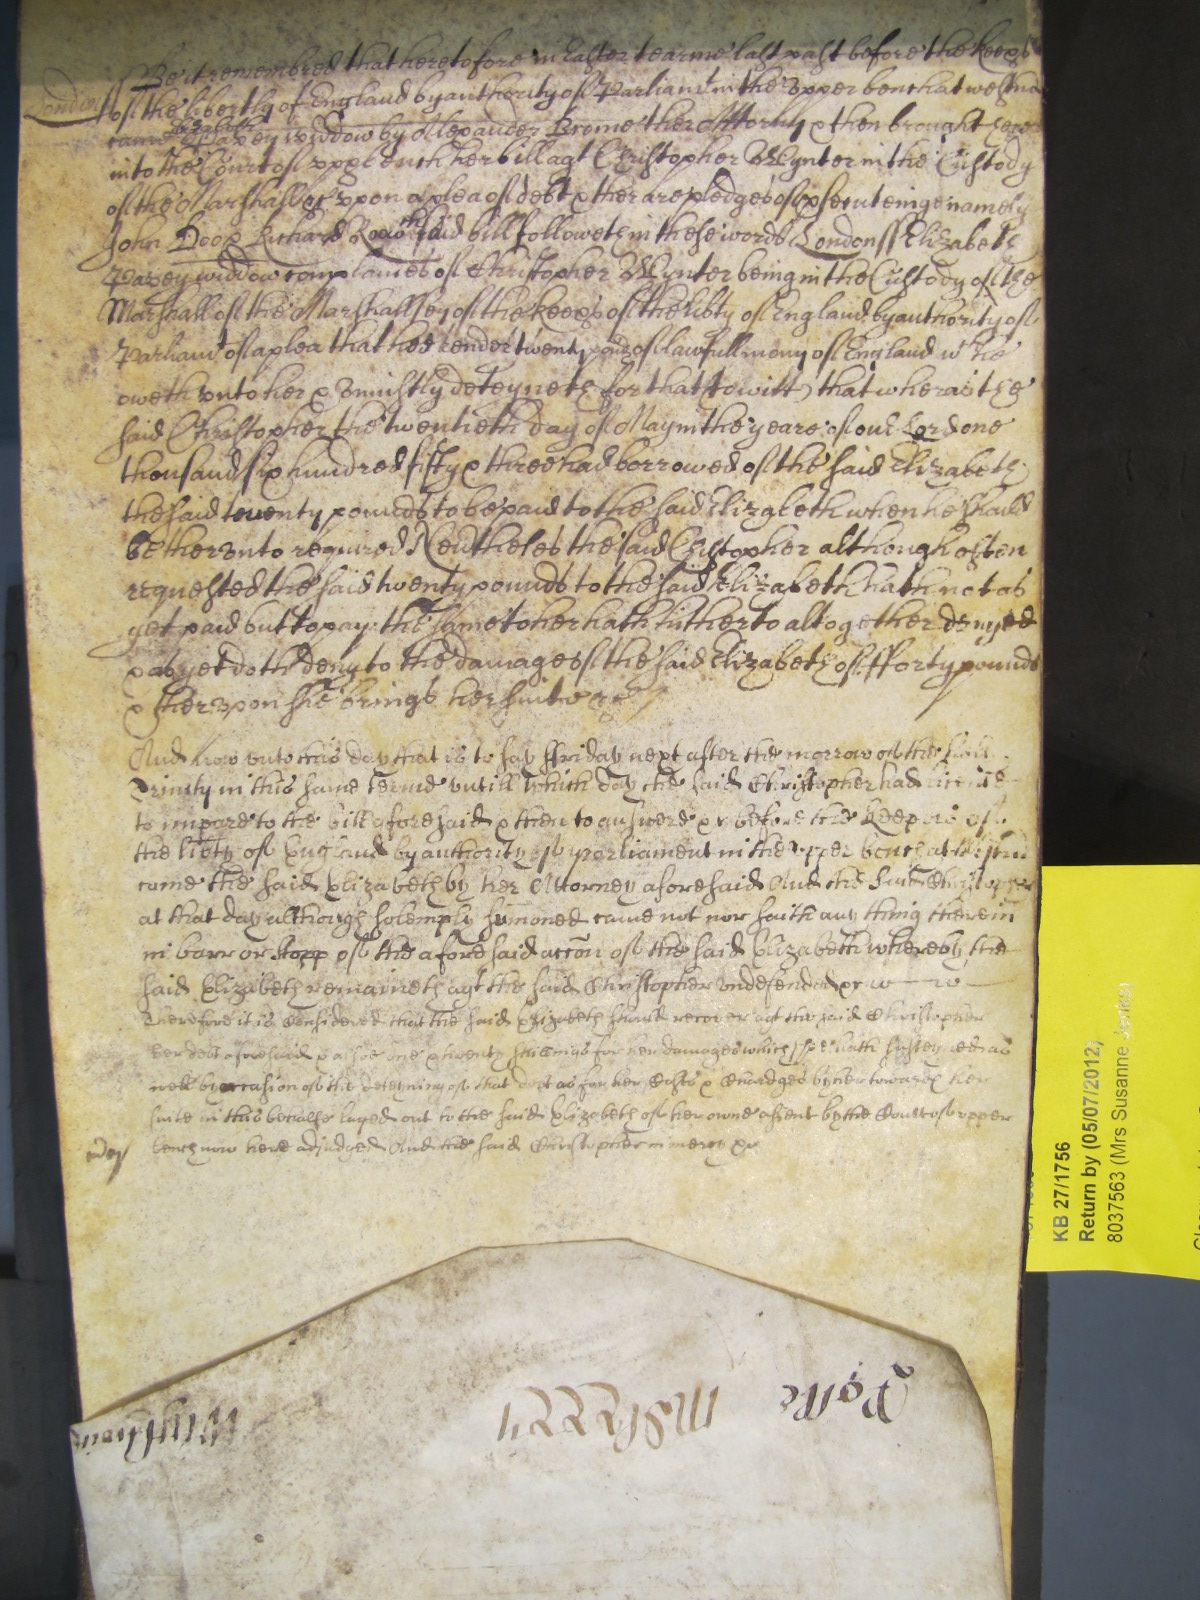 London ss Be it remembred that heretofore in Easter tearme last past before the keeps
of the libertty of England by authority of Parliamt in the Upper bench at Westm
came Elizabeth Paxey widdow by Allexander Brome her Attorny & then brought here
into the Court of upp bench her bill agt Christopher Wynter in the Custody
of the Marshall &c upon a plea of debt & ther are pledges of psecuteinge namely
John Doo & Richard Roo wch said bill followeth in these words London ss Elizabeth
Paxey widdow complaines of Christopher Wynter being in the Custody of the
Marshall of the Marshallsey of the keeps of the libty of England by authority of
Parliamt of a plea that hee render twenty pounds of lawfull mony of England wch he
oweth unto her & uniustly deteyneth for that (to witt) that wheras the
said Christopher the twentieth day of May in the yeare of our Lord one
thousand six hundred fifty & three had borrowed of the said Elizabeth
the said twenty pounds to be paid to the said Elizabeth when he should
be therunto required Neutheles the said Christopher although often
requested the said twenty pounds to the said Elizabeth hath not as
yet paid but to pay the same to her hath hitherto altogether denyed
& as yet doth deny to the damage of the said Elizabeth of fforty pounds
& therupon she brings her suite &c
And now unto this day that is to say ffriday next after the morrow of the holy
Trinity in this same terme untill which day the said Christopher had licence
to impare to the bill aforesaid & then to answere &c before the keepers of
the libty of England by authority of Parliament in the upper bench at Westm
came the said Elizabeth by her Attorney aforesaid And the said Christopher
at that day although solemply sumoned came not nor saith any thing therein
in barr or stopp of the aforesaid accon of the said Elizabeth whereby the
said Elizabeth remaineth agt the said Christopher undefended &c
Therefore it is Considered that the said Elizabeth should recover agt the said Christopher
her debt aforesaid & alsoe one & twenty shillings for her damages which she hath susteyned as
well by occasion of the deteyning of that debt as for her Costs & Chardges by her towards her
suite in this behalfe layed out to the said Elizabeth of her owne assent by the Court of upper
bench now here adjudged And the said Christopher in mercy &c
Rolle
KB 27/1756
Return by (05/07/2012)
8037563 (Mrs Susanne